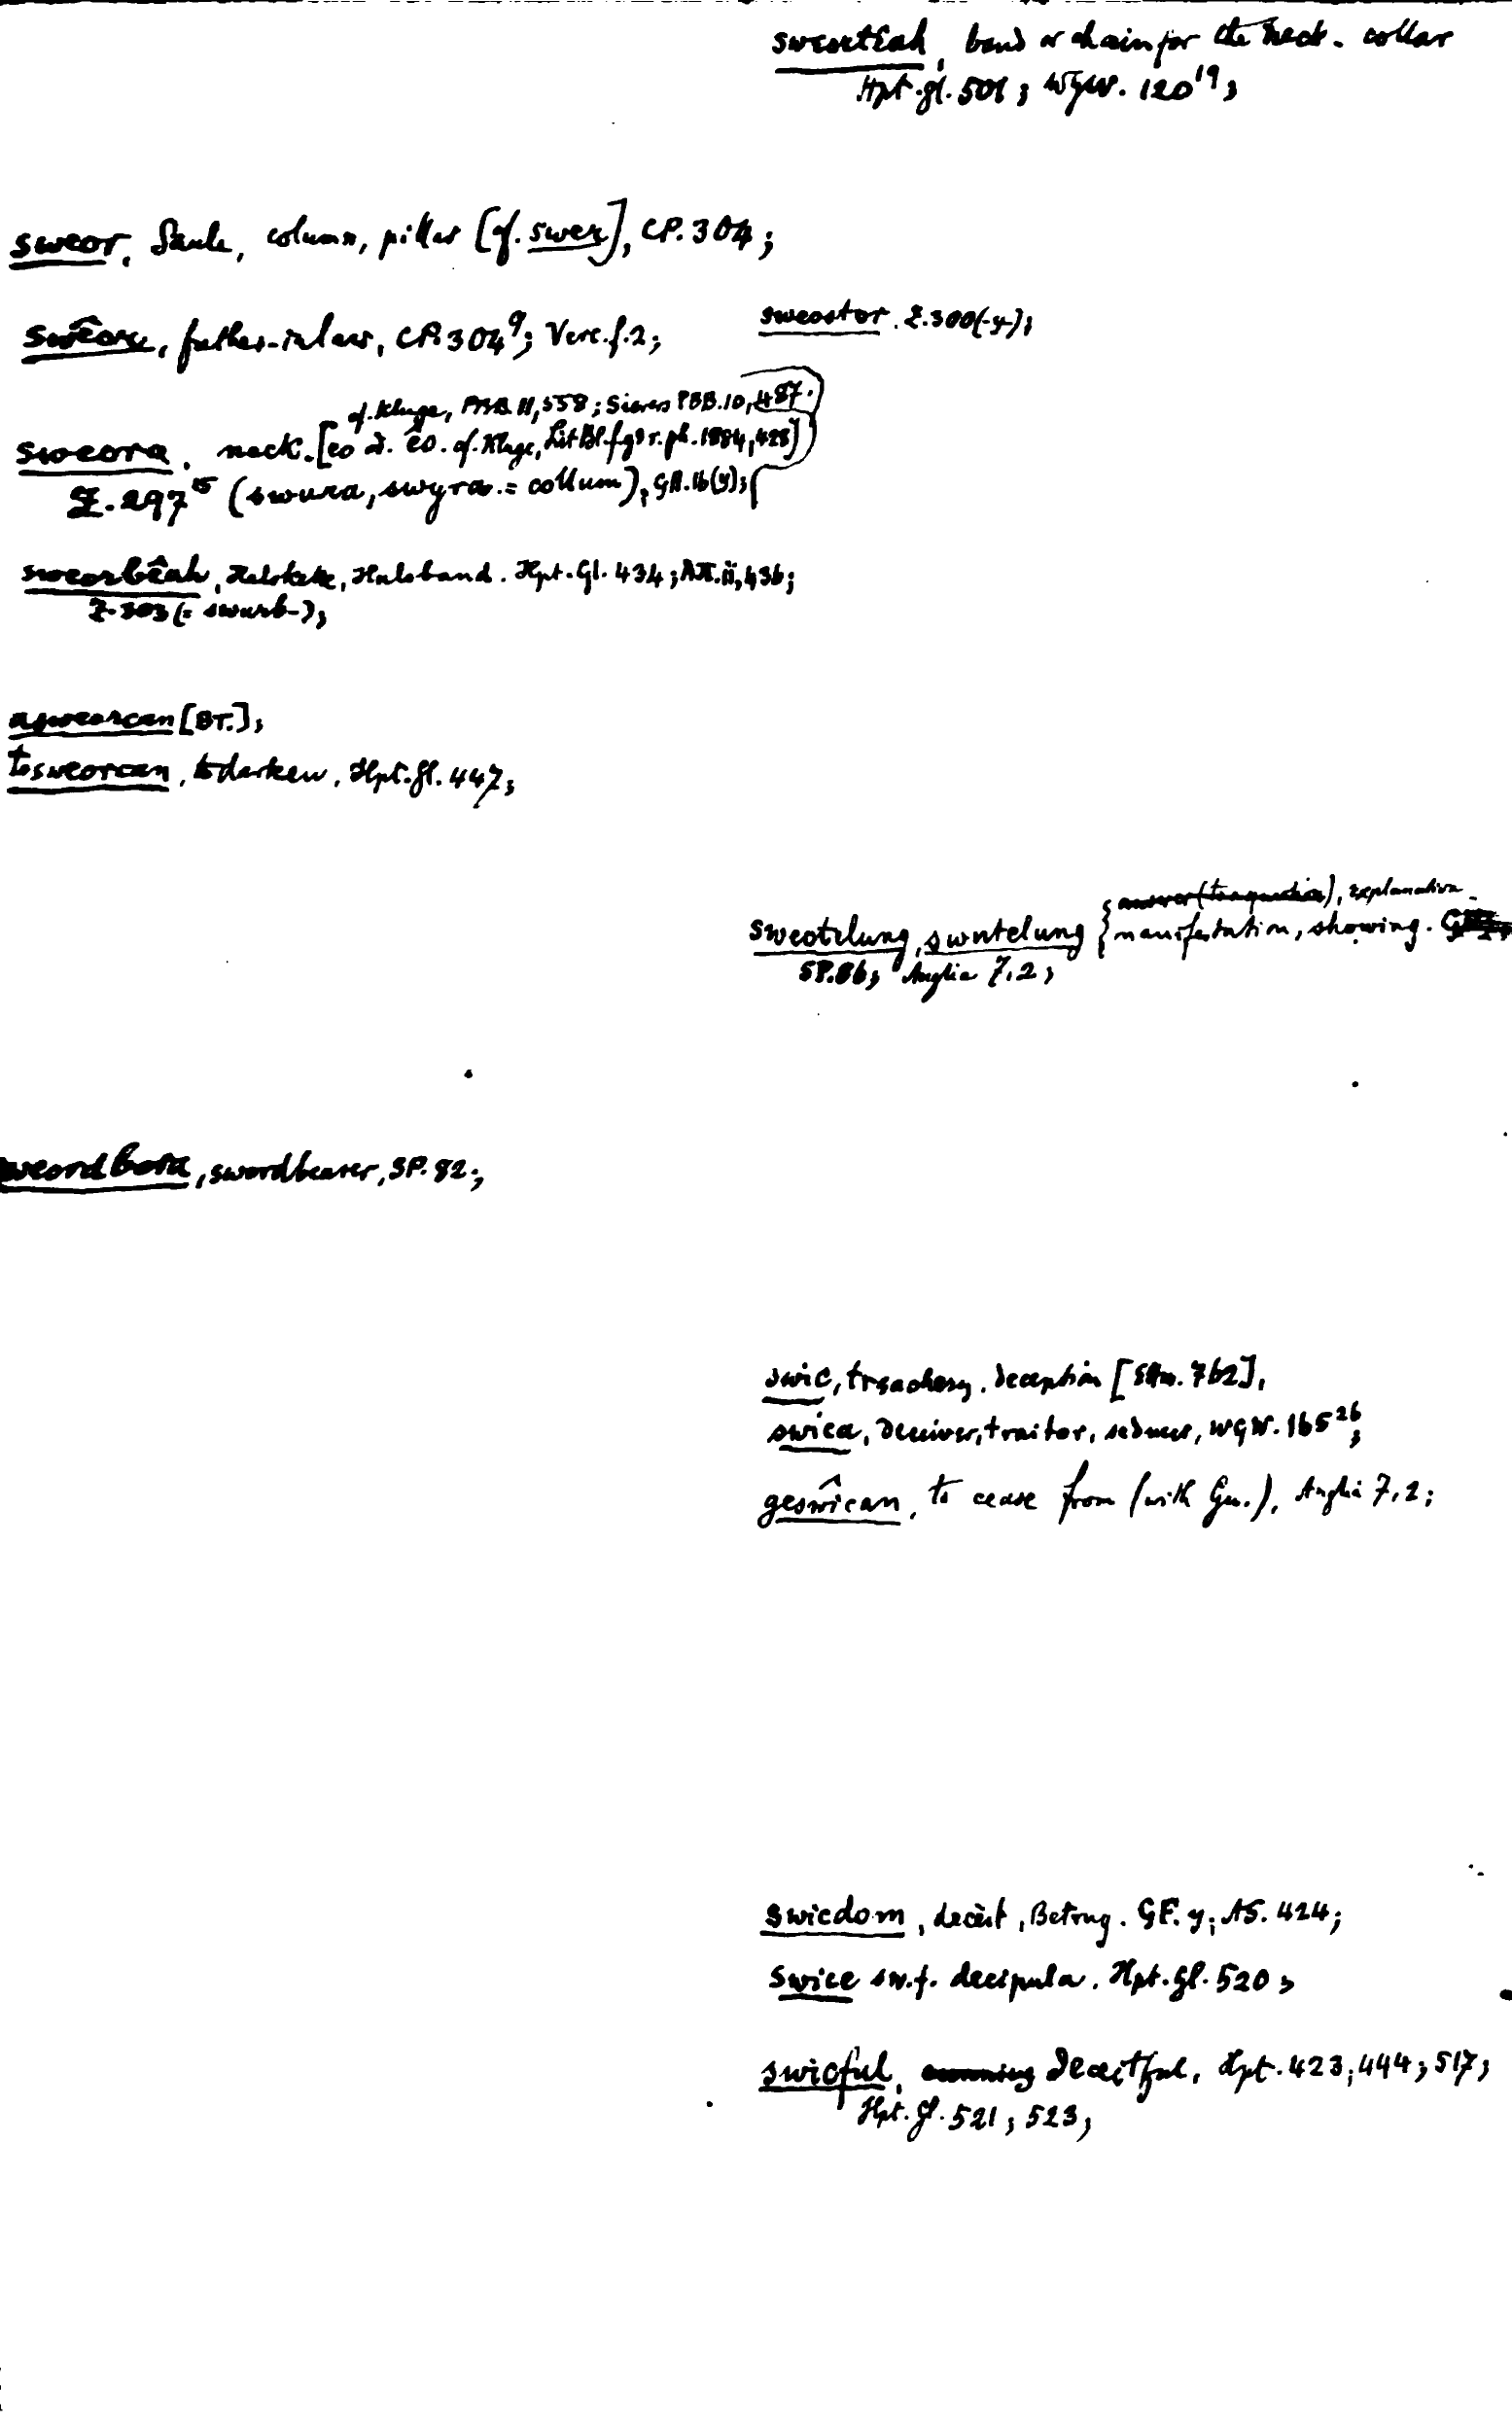 sweorteah, band or chain for the neck. collar
Hpt. gl. 501; WGW. 120¹⁹;
sweor, Säule, column, pillar [cf. swer], CP. 304;
swêor, father-in law, CP. 304⁹; Verc. f. 2;
sweostor. Z. 300(-y);
cf. Kluge, PBB. 11, 558; Sievers PBB. 10, 487.
sweora, neck. [eo d. êo. cf. Kluge, Lit Bl. f. g. r. ph. 1884, 428]
Z. 297¹⁵ (swura, swyra = collum), GR. 16(y);
sweorbêah, Halskette, Halsband. Hpt. Gl. 434; ii, 436;
Z. 303 (= swurb-);
asweorcan [BT.];
tosweorcan, to darken, Hpt. gl. 447;
answer (to a question), explanation
sweotelung, swutelung { manifestation, showing.
SP. 86; Anglia 7, 2;
weordbora, swordbearer, SP. 82;
swic, treachery. deception [762],
swica, deceiver, traitor, seducer, WGW. 165²⁶;
geswîcan, to cease from (with Gen.), Anglia 7, 2;
swicdom, deceit, Betrug. GF. y; AS. 424;
swice sw. f. decipula. Hpt. gl. 520;
swicful, cunning deceitful, Hpt. 423; 444; 517;
Hpt. gl. 521; 523;